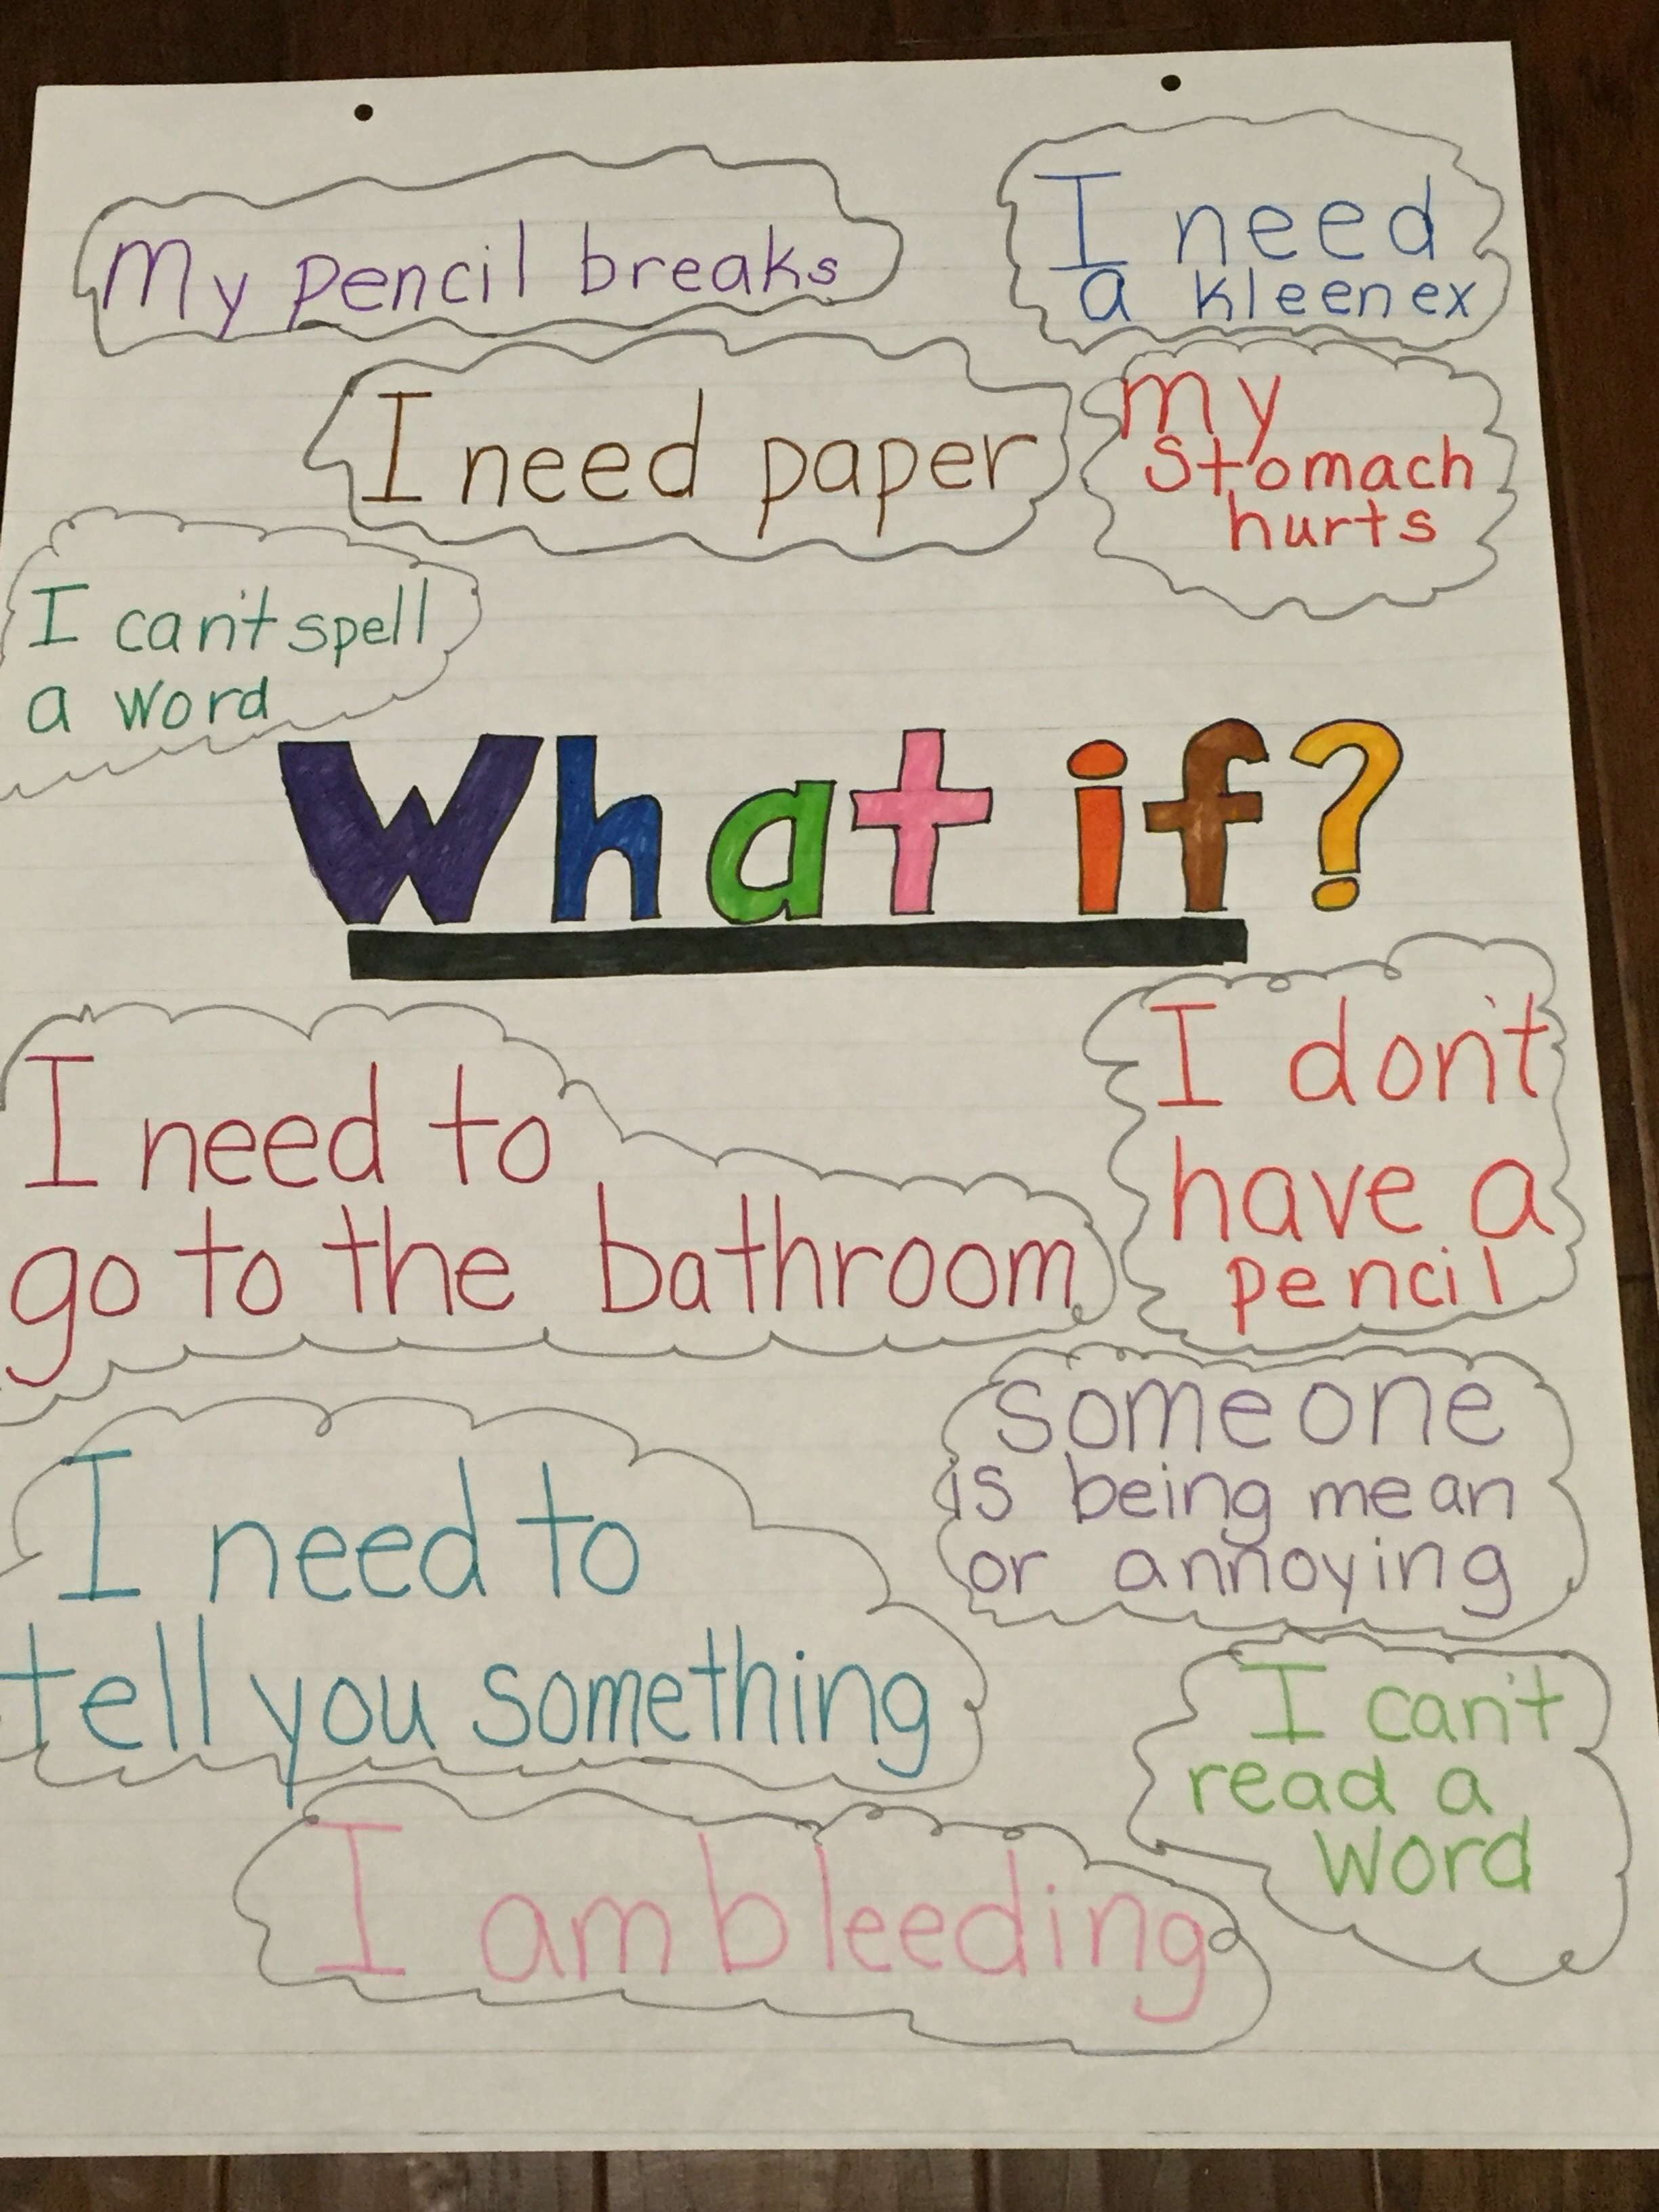 My pencil breaks
I need
a kleenex
I need paper
my
stomach
hurts
I can't spell
a word
What if?
I need to
go to the bathroom
I don't
have a
pencil
someone
is being mean
or annoying
I need to
tell you something
I can't
read a
word
I am bleeding